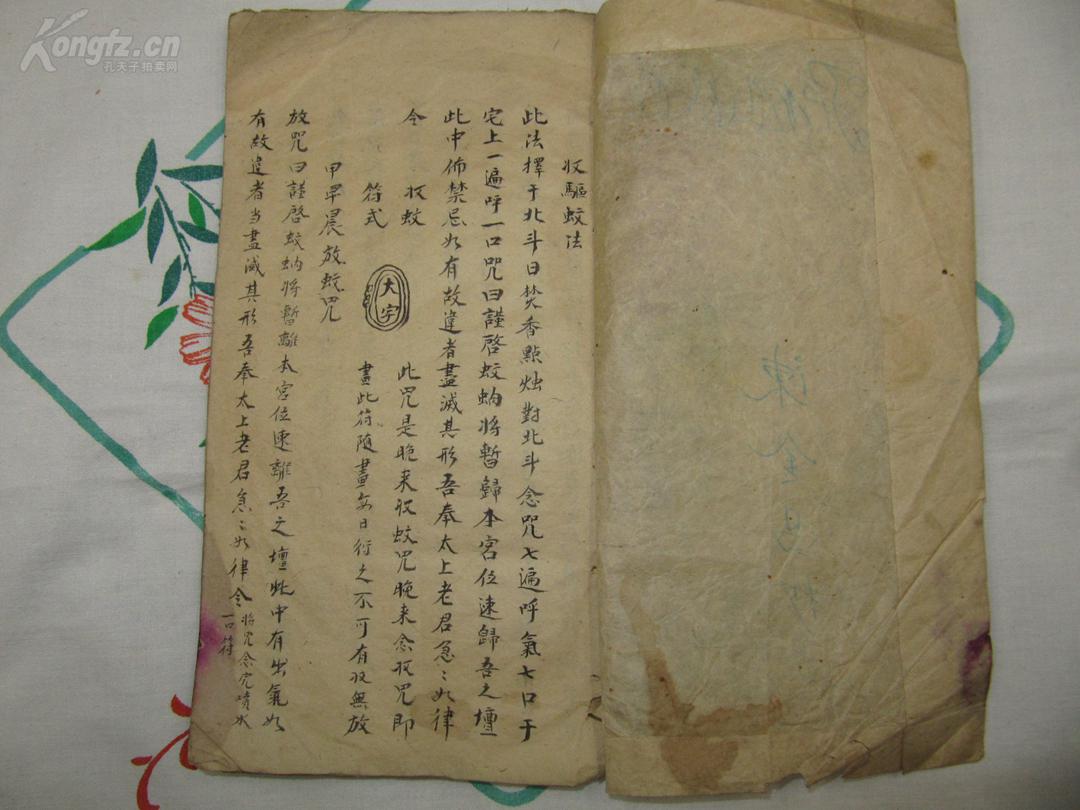 Kongfz.cn
孔夫子拍卖网
收驅蚊法
此法擇于北斗日焚香點烛對北斗念咒七遍呼氣七口于
宅上一遍呼一口咒曰謹啓蚊蚋将暫歸本宮位速歸吾之壇
此中佈禁忌如有故違者盡滅其形吾奉太上老君急〻如律
令 收蚊
此咒是晚来收蚊咒晚来念收咒即
符式
大字
畫此符随畫每日行之不可有收無放
甲早晨放蚊咒
放咒曰謹啓蚊蚋将暫離本宮位速離吾之壇此中有出氣如
有故違者当盡滅其形吾奉太上老君急〻如律令
将咒念完噴水
一口符
陳全